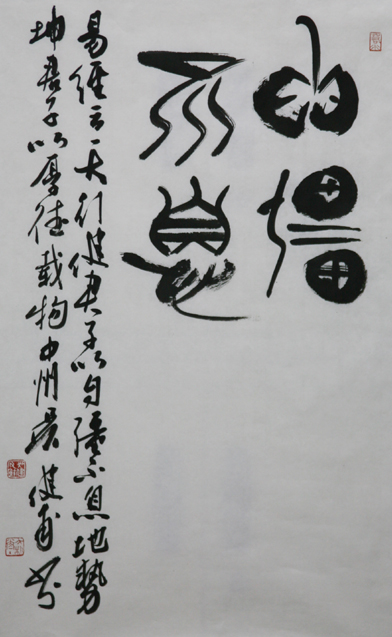 自彊
不息
易经云天行健君子以自强不息地势
坤君子以厚德载物中州吴健甫书